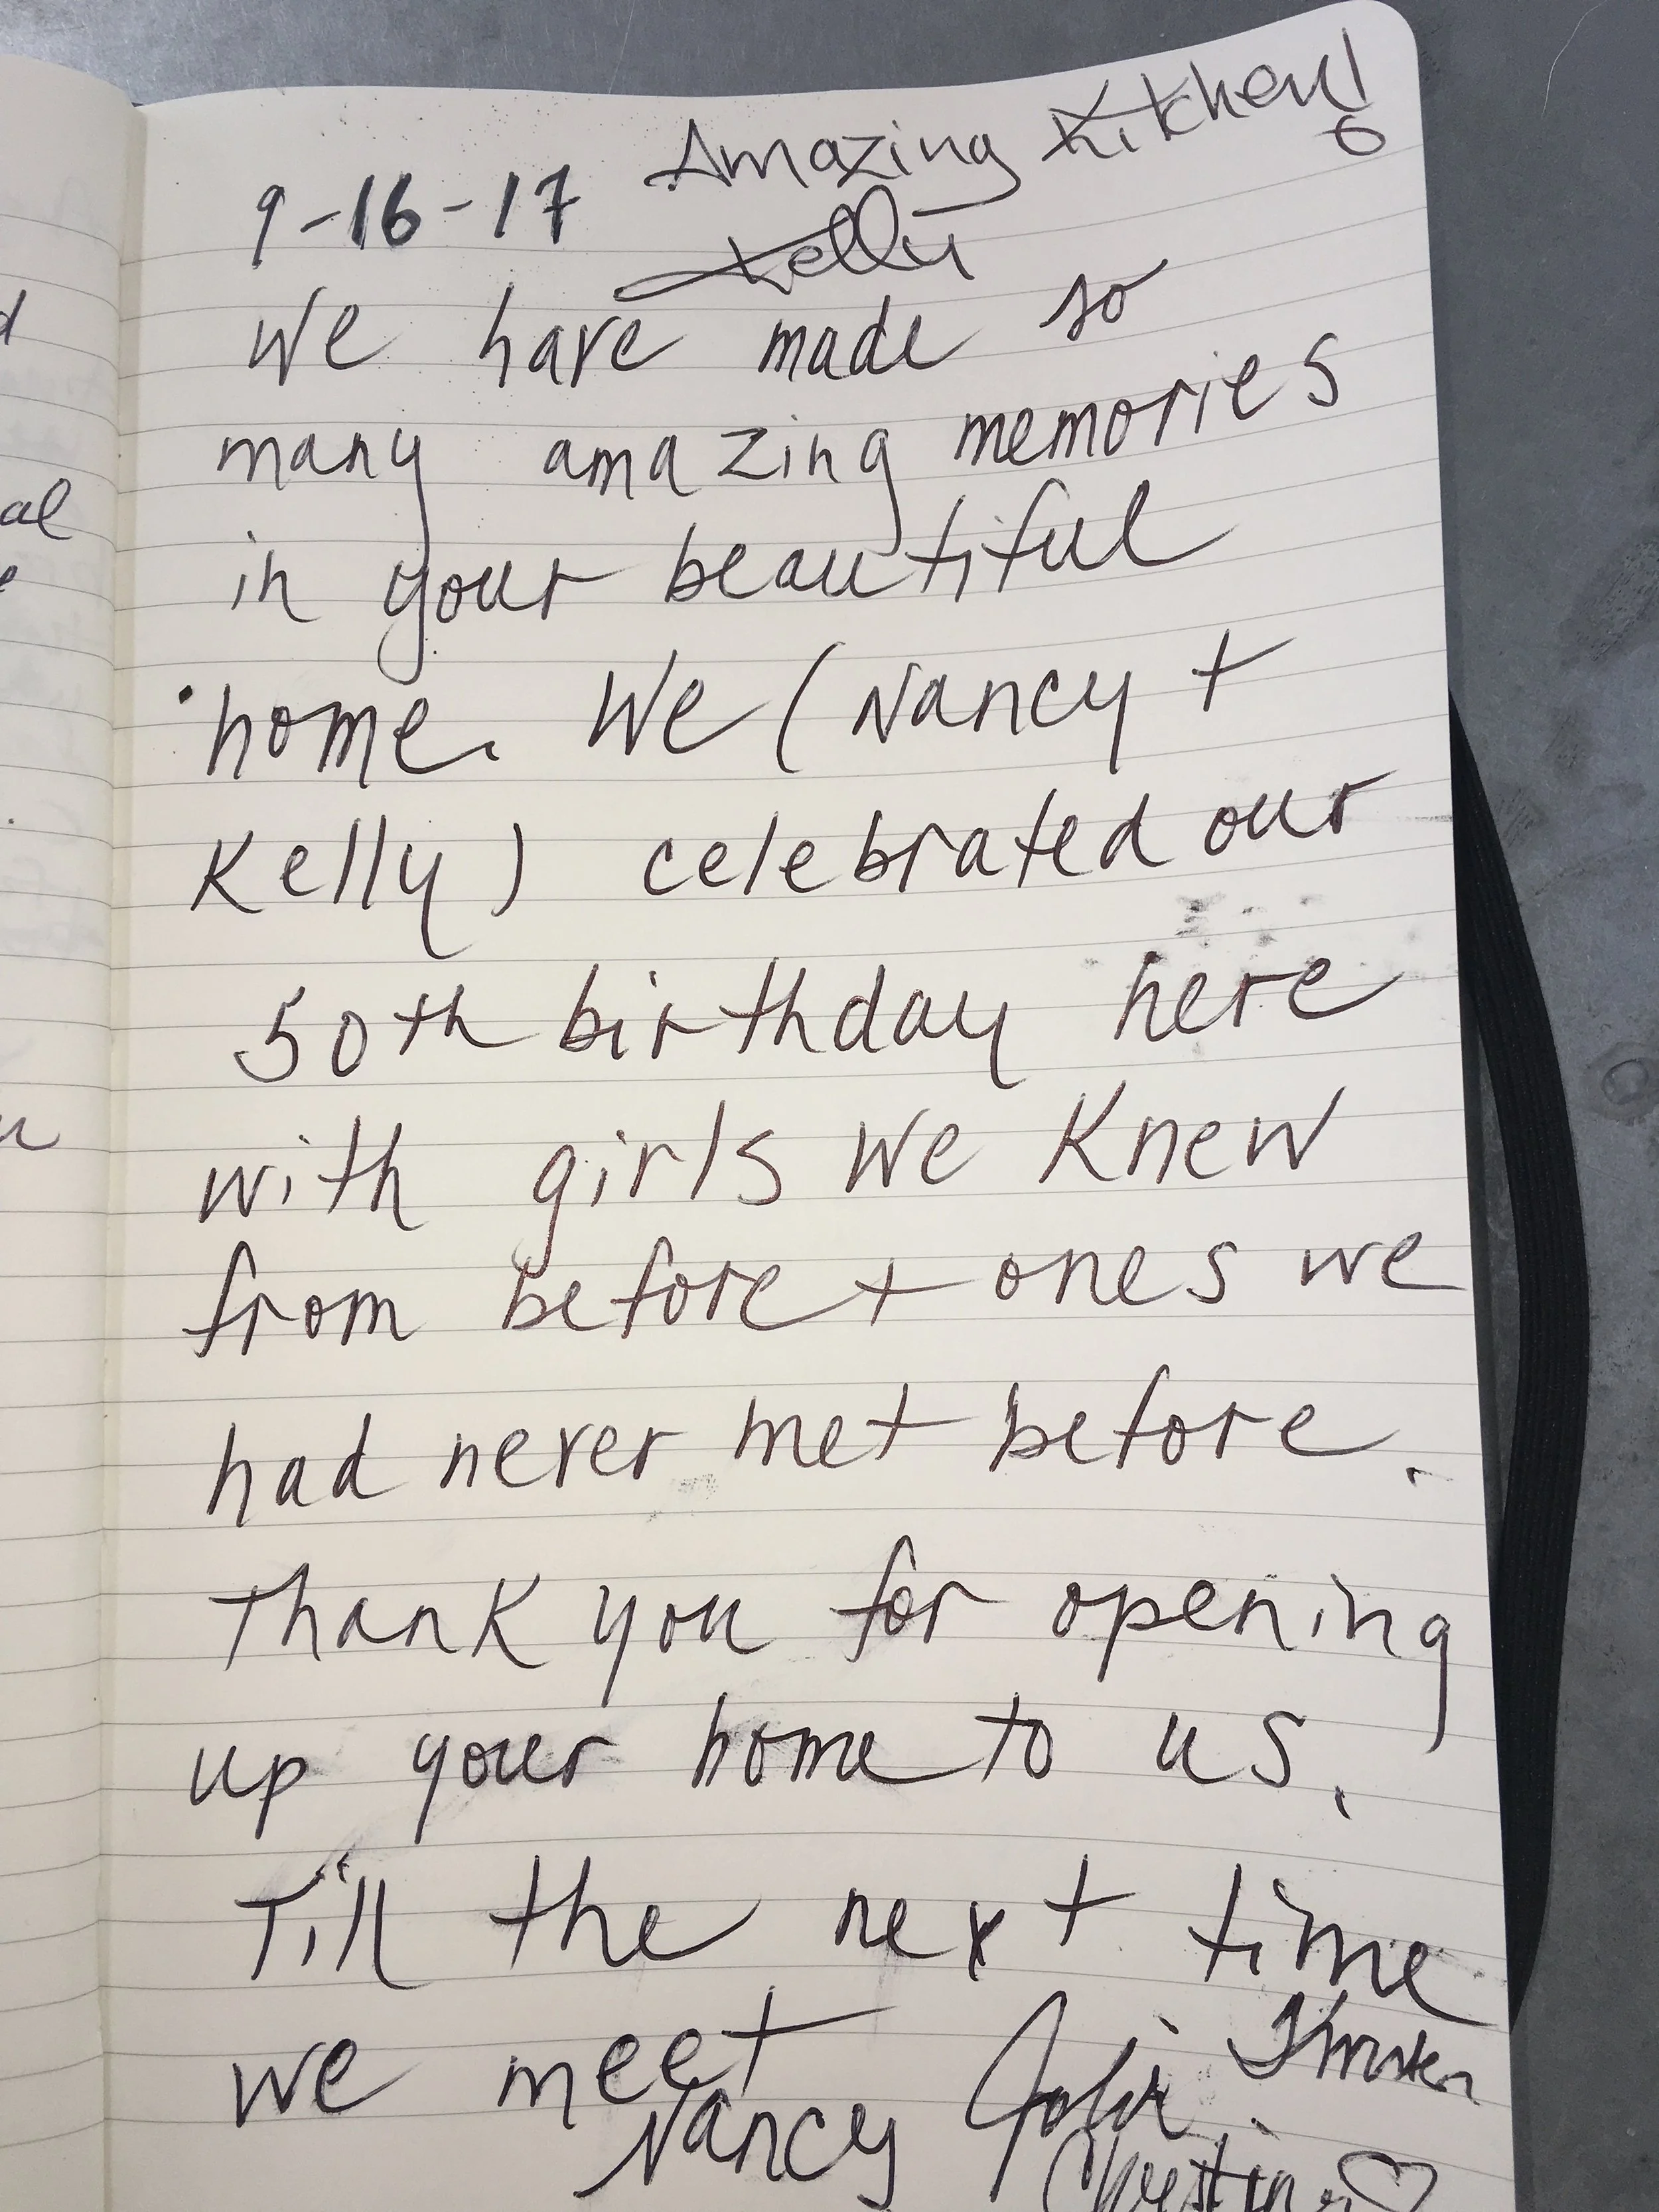 Amazing Kitchen!
9-16-17
Kelly
We have made so
many amazing memories
in your beautiful
home. We (Nancy +
Kelly) celebrated our
50th birthday here
with girls we knew
from before + ones we
had never met before.
Thank you for opening
up your home to us.
Till the next time
we meet
Nancy